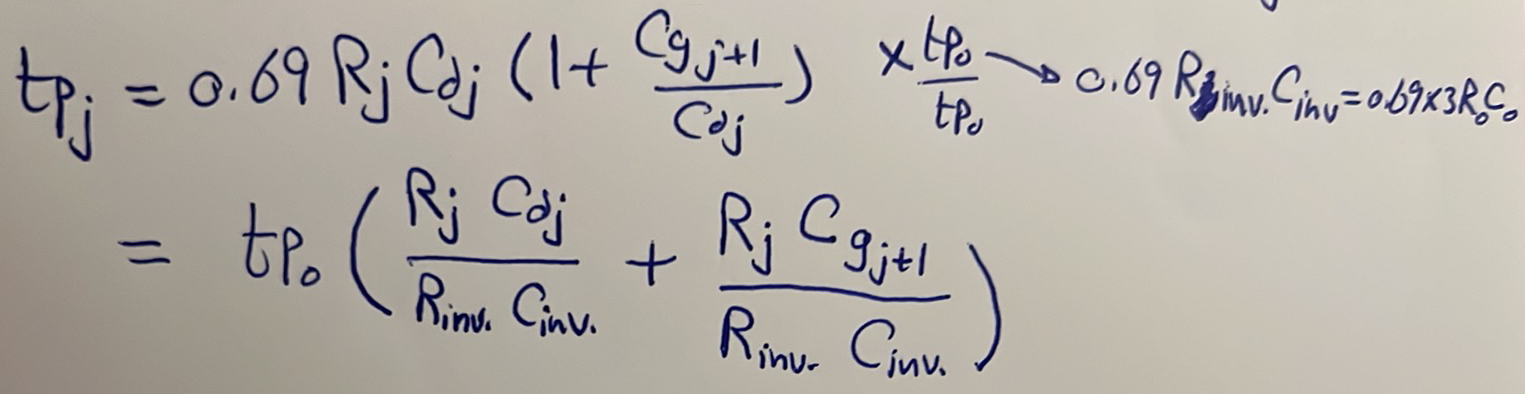 tpj = 0.69 Rj Cdj (1 + Cgj+1 / Cdj) × tp0 / tp0 → 0.69 Rinv. Cinv = 0.69×3R0C0
= tp0 ( Rj Cdj / Rinv. Cinv. + Rj Cgj+1 / Rinv. Cinv. )